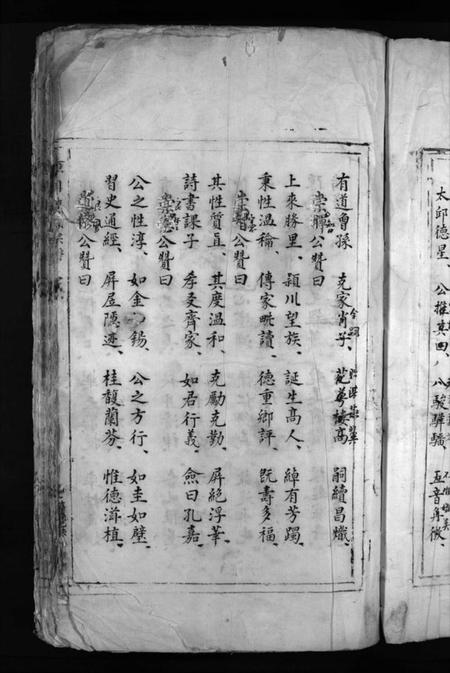 太邱德星、公推其、八駿驊騮、五音
有道曾孫 克家肖子、高 嗣續昌熾、
崇公贊曰
上來勝里、潁川望族、誕生高人、綽有芳躅、
秉性温、傳家畊讀、德重鄉評、既壽多福、
崇公贊曰
其性質直、其度温和、克勵克勤、屏絕浮華、
詩書課子 孝友齊家、如君行義、僉曰孔嘉、
公贊曰
公之性淳、如金錫、公之方行、如圭如璧、
習史通經、屏居隠迹、桂馥蘭芬、惟德滋植、
公贊曰